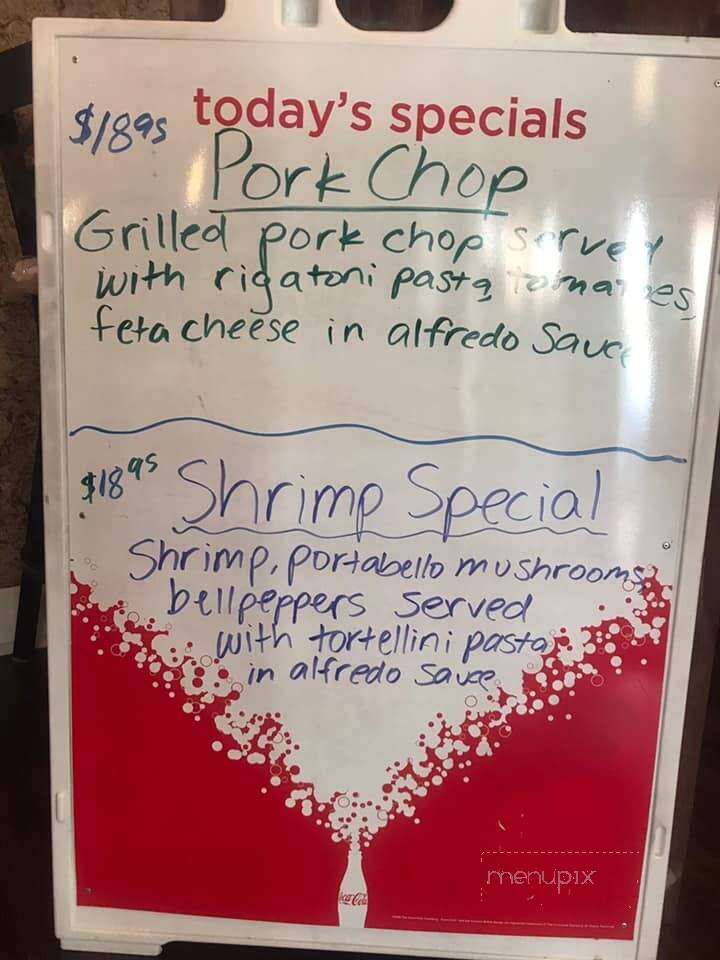 today's specials
$18.95
Pork Chop
Grilled pork chop served
with rigatoni pasta, tomatoes,
feta cheese in alfredo Sauce
$18.95
Shrimp Special
Shrimp, portabello mushrooms,
bellpeppers served
with tortellini pasta
in alfredo sauce
Coca-Cola
menupix